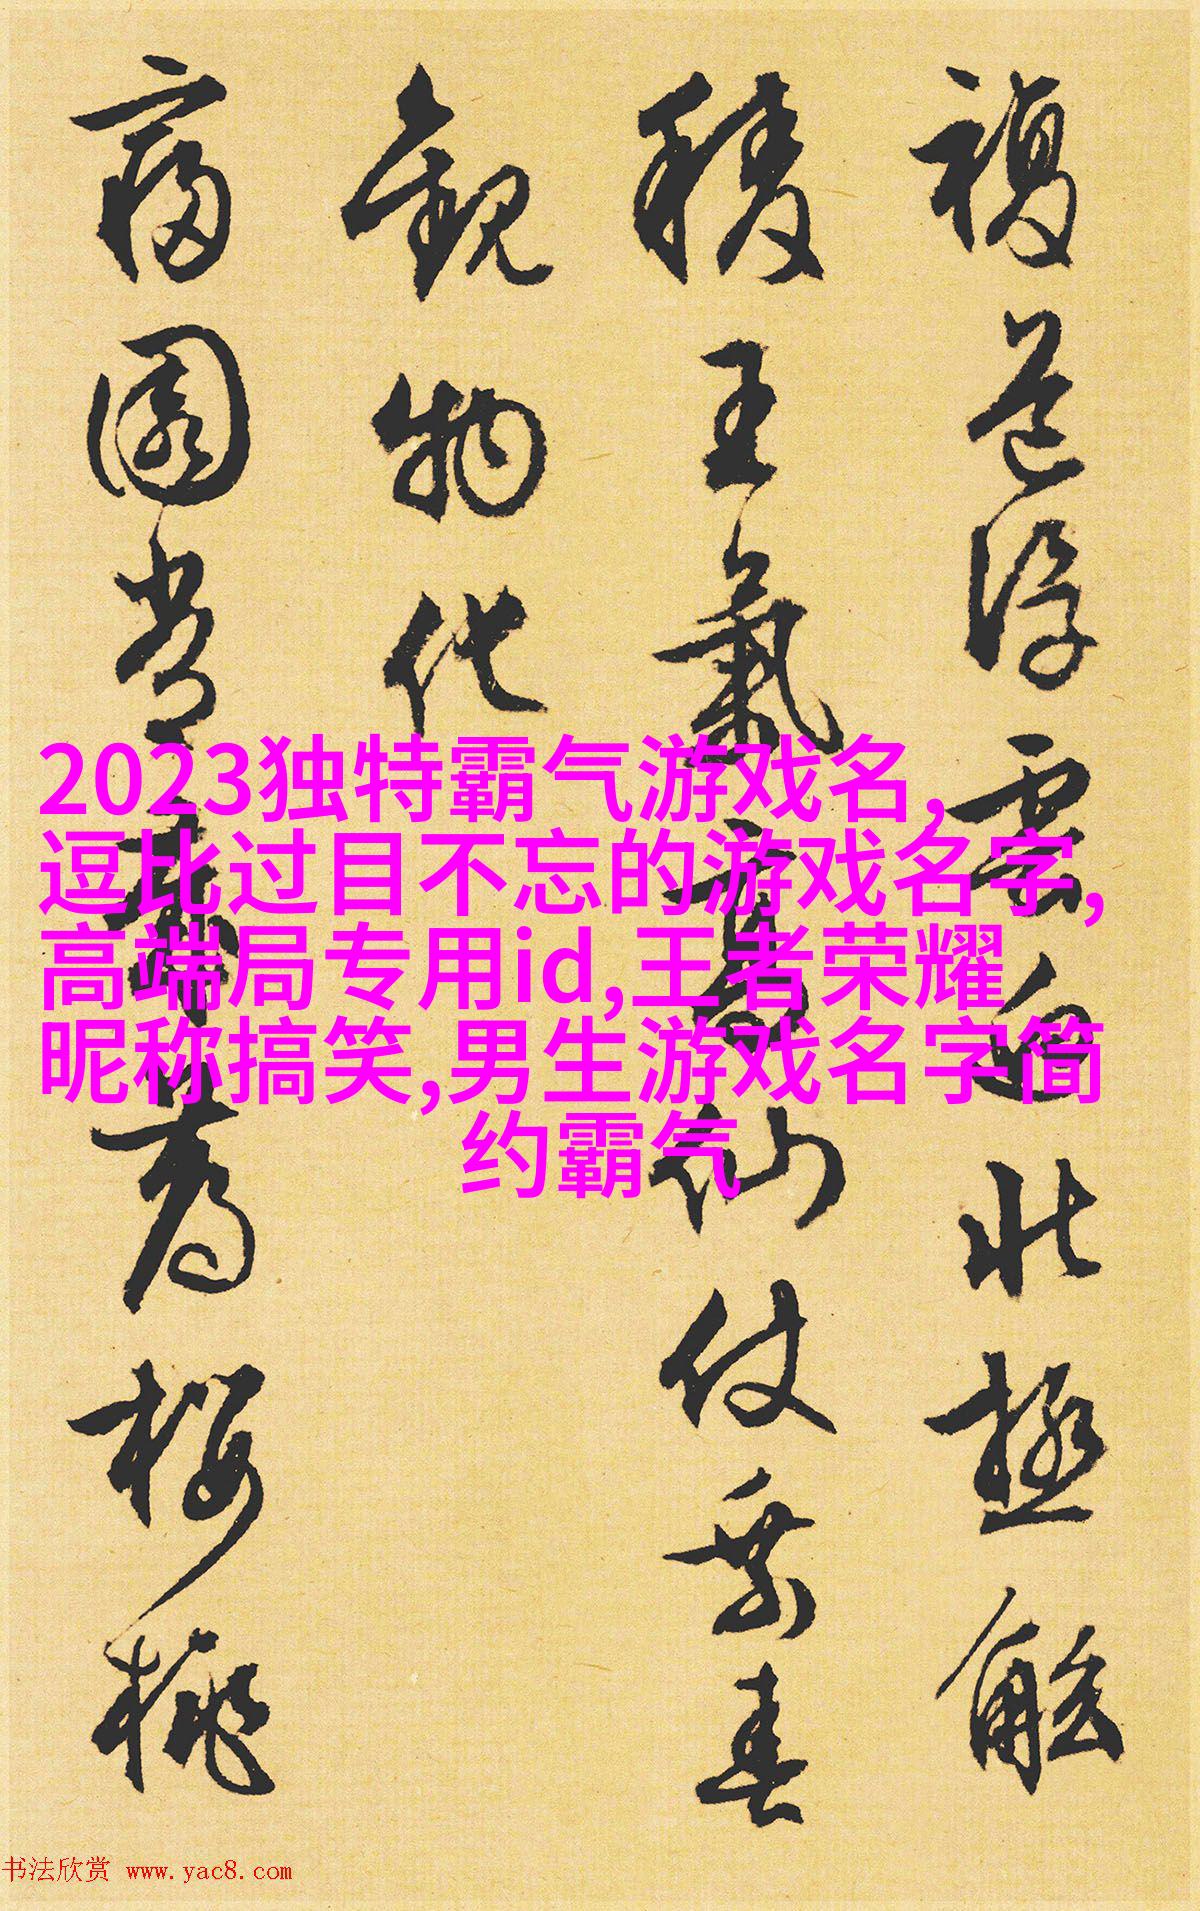 複道浮雲迥北極觚
稜王氣高仙仗乘春
觀物化
寢園常薦櫻桃
2023独特霸气游戏名,
逗比过目不忘的游戏名字,
高端局专用id,王者荣耀
昵称搞笑,男生游戏名字简
约霸气
书法欣赏 www.yac8.com